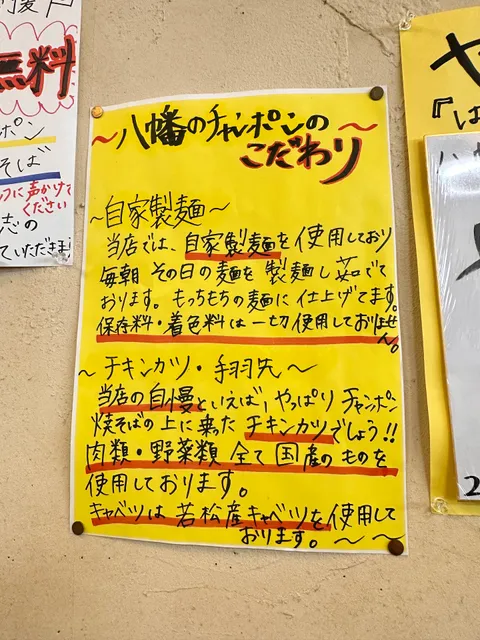 無料
ポン
そば
フに声かけて
ください
志の
ていただきま
~八幡のチャンポンの~
こだわり
~自家製麺~
当店では、自家製麺を使用しており
毎朝その日の麺を製麺し茹でて
おります。もっちもちの麺に仕上げてます。
保存料・着色料は一切使用しておりません。
~チキンカツ・手羽先~
当店の自慢といえば、やっぱりチャンポン
焼そばの上に乗った チキンカツでしょう!!
肉類・野菜類 全て国産のものを
使用しております。
キャベツは若松産キャベツを使用して
おります。~~
や
『は